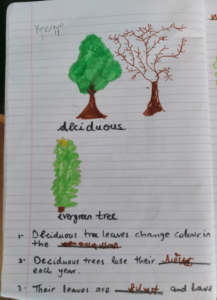 deciduous
evergreen tree
1- Deciduous tree leaves change colour in
the
2- Deciduous trees lose their
each year.
3- Their leaves are and have